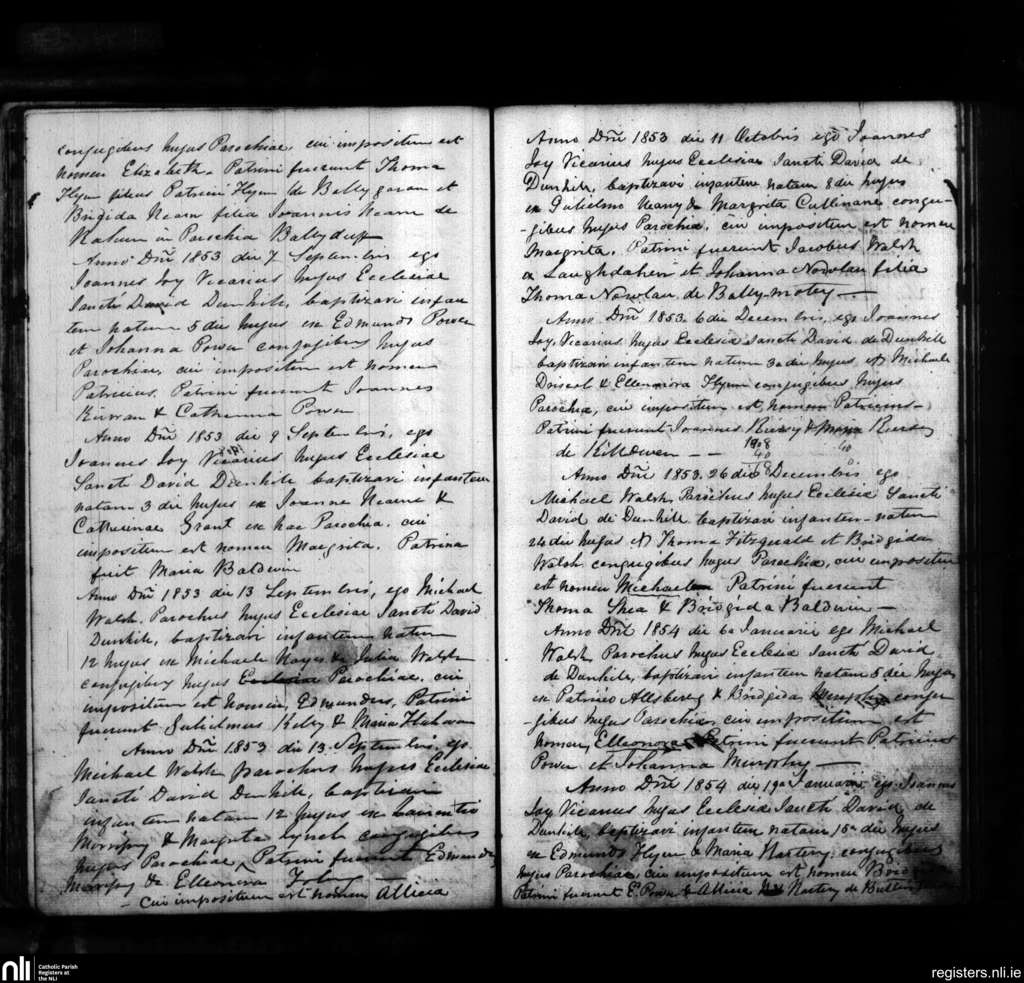 conjugibus hujus Parochiae cui impositum est
nomen Elizabeth. Patrini fuerunt Thoma
Flynn filius Patricii Flynn de Ballygaran et
Brigida Hearn filia Joannis Hearn de
in Parochia Ballyduff
Anno Dñi 1853 die 7 Septembris ego
Joannes Joy Vicarius hujus Ecclesiae
Sancti David Dunhile, baptizavi infan
tem natum 5 die hujus ex Edmundo Power
et Johanna Power conjugibus hujus
Parochiae, cui impositum est nomen
Patricius. Patrini fuerunt Joannes
Kirwan & Catherina Power
Anno Dñi 1853 die 9 Septembris, ego
Joannes Joy Vicarius hujus Ecclesiae
Sancti David Dunhile baptizavi infantem
natam 3 die hujus ex Joanne Hearne &
Catherinae Grant ex hac Parochia. cui
impositum est nomen Margrita. Patrina
fuit Maria Baldwin
Anno Dñi 1853 die 13 Septembris, ego Michael
Walsh, Parochus hujus Ecclesiae Sancti David
Dunhile, baptizavi infantem natum
12 hujus ex Michaele Hayes & Julia Walsh
conjugibus hujus Parochiae, cui
impositum est nomen, Edmundus, Patrini
fuerunt Gulielmus Kelly & Maria
Anno Dñi 1853 die 13 Septembris, ego
Michael Walsh parochus hujus Ecclesiae
Sancti David Dunhile, baptizavi
infantem natam 12 hujus ex Laurentio
Morrissy & Margrita Lynch conjugibus
hujus Parochiae, ^ Patrini fuerunt Edmundo
Morrissy & Elleonora
— cui impositum est nomen Allicia
Anno Dñi 1853 die 11 Octobris ego Joannes
Joy Vicarius hujus Ecclesiae Sancti David de
Dunhile, baptizavi infantem natam 8 die hujus
ex Gulielmo Meany & Margrita Cullinane conju-
-gibus hujus Parochiae, cui impositum est nomen
Margrita, Patrini fuerunt Jacobus Walsh
a Laughdahen et Johanna Nowlan filia
Thoma Nowlan de Bally-motey —
Anno Dñi 1853. 6 die Decembris, ego Joannes
Joy, Vicarius hujus Ecclesia Sancti David de Dunhile
baptizavi infantem natum 3a die hujus, ex Michaele
Driscol & Ellenora Flynn conjugibus hujus
Parochia, cui impositum est nomen Patricius —
Patrini fuerunt Joannes &
de Killowen — —
1908
40
Anno Dñi 1853. 26 die Decembris ego
Michael Walsh, Parochus hujus Ecclesia Sancti
David de Dunhile baptizavi infantem — natum
24 die hujus ex Thoma Fitzgerald et Bridgida
Walsh conjugibus hujus Parochiae, cui impositum
est nomen Michael Patrini fuerunt
Thoma Shea & Bridgida Baldwin —
Anno Dñi 1854 die 6a Januarii ego Michael
Walsh Parochus hujus Ecclesia Sancti David.
de Dunhile, baptizavi infantem natam 5 die hujus
ex Patricio & Bridgida Murphy conju-
gibus hujus Parochiae, cui impositum est
nomen, Elleonora Patrini fuerunt Patricius
Power et Johanna Murphy —
Anno Dñi 1854 die 19a Januarii, ego Joannes
Joy Vicarius hujus Ecclesia Sancti David de
Dunhile, baptizavi infantem natam 15a die hujus
ex Edmundo Flynn & Maria Hartery, conjugibus
hujus Parochiae, cui impositum est nomen
Patrini fuerunt E. Power & Allicia Hartery de
nli
Catholic Parish
Registers at
the NLI
registers.nli.ie